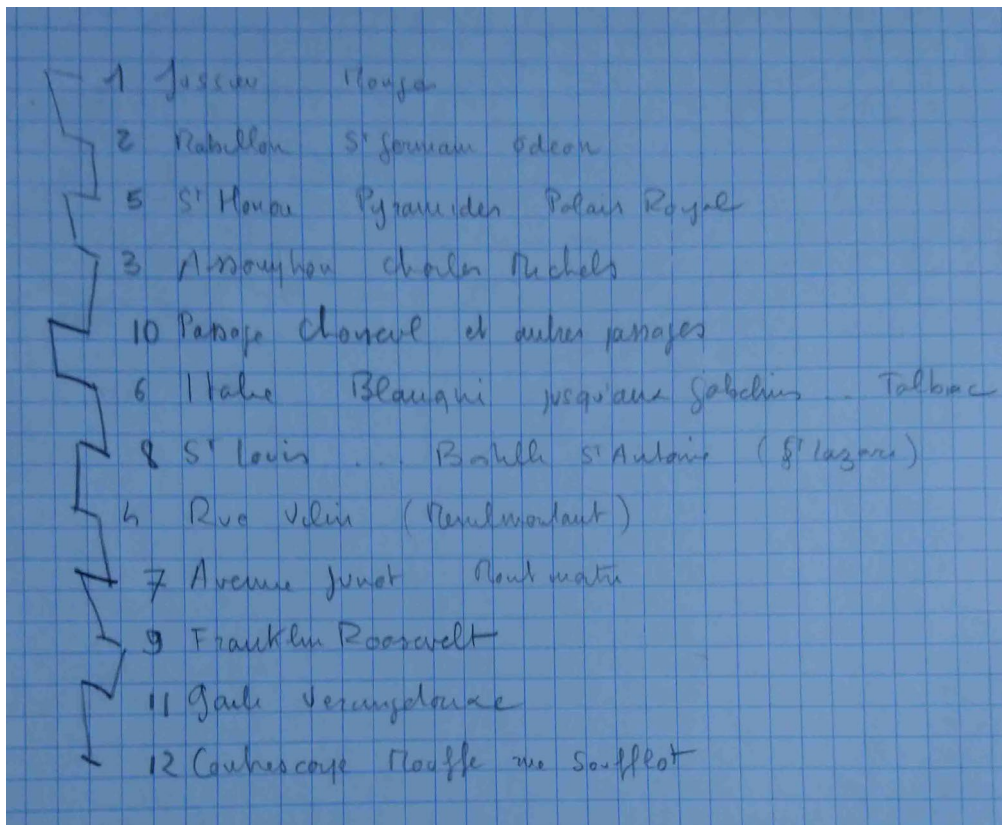 1 Jussieu Monge
2 Mabillon St Germain Odéon
5 St Honoré Pyramides Palais Royal
3 Assomption Charles Michels
10 Passage Choiseul et autres passages
6 Italie Blanqui jusqu'aux Gobelins .. Talbiac
8 St Louis ... Bastille St Antoine (St Lazare)
4 Rue Vilin (Menilmontant)
7 Avenue Junot Montmatre
9 Franklin Roosevelt
11 Gaité Vercingétorix
12 Contrescarpe Mouffe rue Soufflot